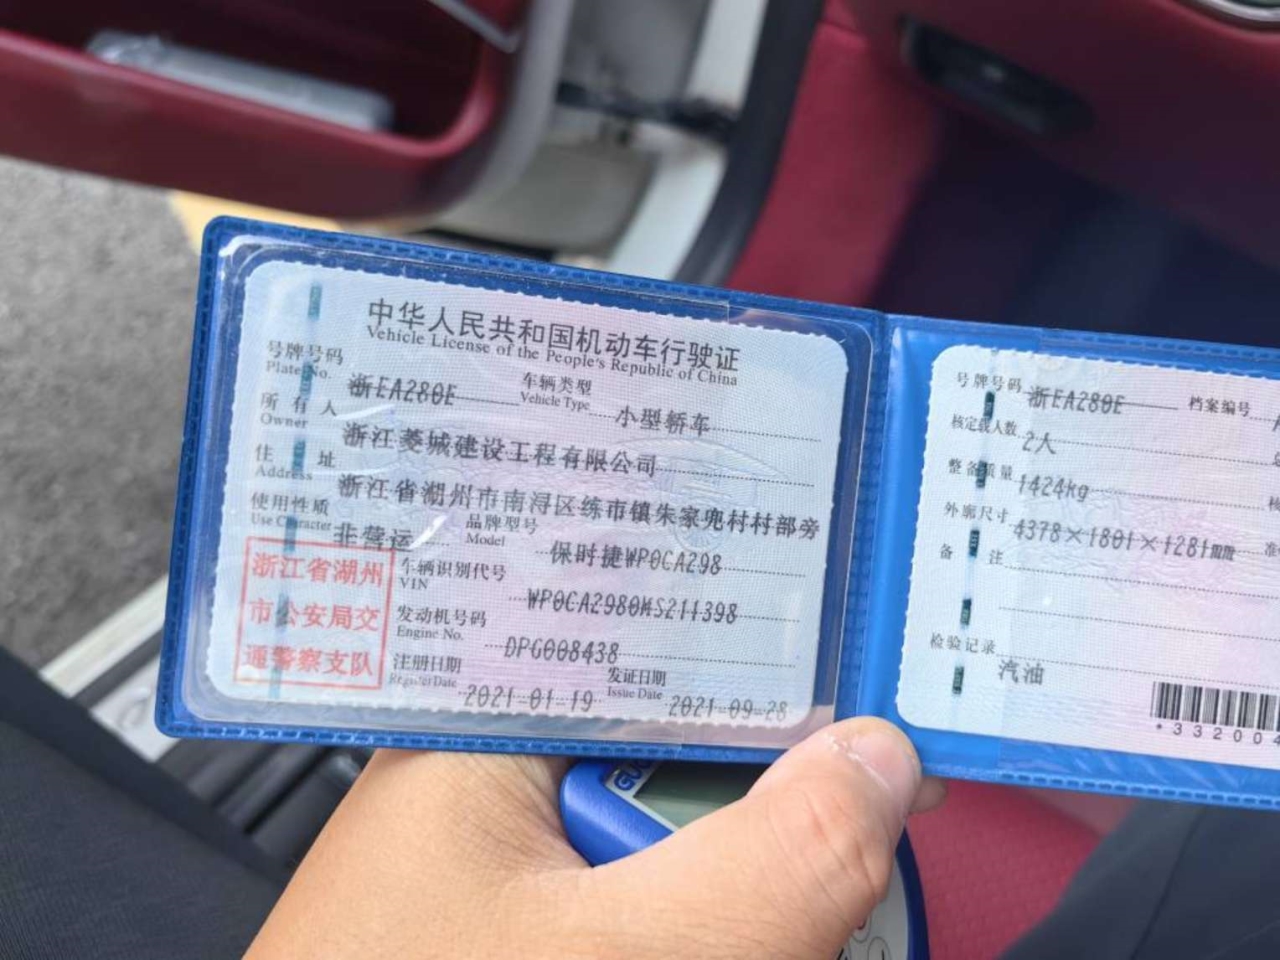 中华人民共和国机动车行驶证
Vehicle License of the People's Republic of China
号牌号码 浙EA280E 车辆类型 小型轿车
Plate No. Vehicle Type
所有人 浙江菱城建设工程有限公司
Owner
住址 浙江省湖州市南浔区练市镇朱家兜村村部旁
Address
使用性质 非营运 品牌型号 保时捷WP0CA298
Use Character Model
浙江省湖州
市公安局交
通警察支队
车辆识别代号 WP0CA2980MS211398
VIN
发动机号码 DPG008438
Engine No.
注册日期 2021-01-19 发证日期 2021-09-28
Register Date Issue Date
号牌号码 浙EA280E 档案编号
核定载人数 2人
整备质量 1424kg
外廓尺寸 4378×1801×1281mm 准
备注
检验记录 汽油
*332004